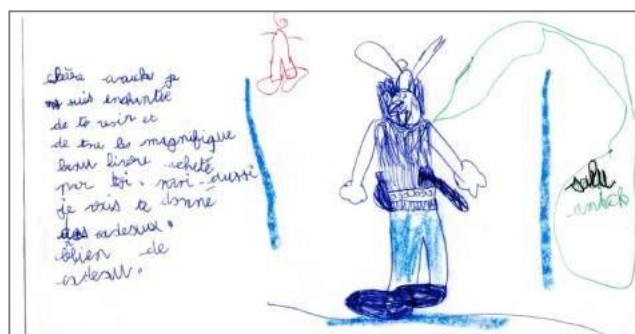 chère anouck je
suis enchantée
de te voir et
de tou les magnifique
beau livere acheté
par toi. moi aussi
je vais te donné
des cadeaux.
bhien de
cadeau.
salu